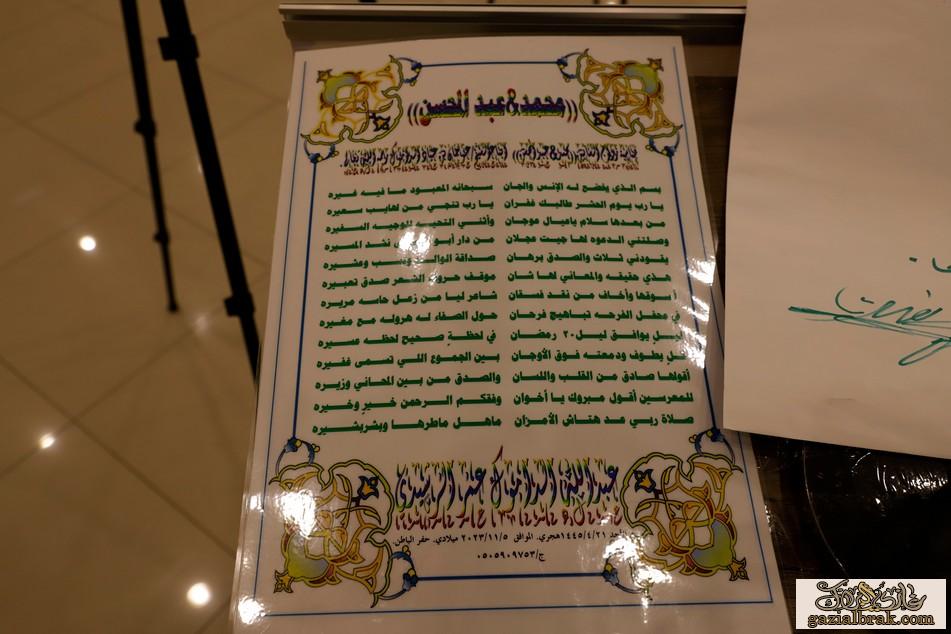 ((محمد & عبد المحسن))
بسم الذي يفضح له الإنس والجان سبحانه المعبود ما فيه غيره
يا رب يوم الحشر طالبك غفران يا رب تنجي من لهايب سعيره
من بعدها سلام ياميال موجان وأثني التحيه للوجيه السفيره
وصلتني الدعوه لها جيت عجلان من دار أبو نشد المسيره
يقودني ثلاث والصدق برهان صداقة وعشيره
هذي حقيقه والمعاني لها شان موقف حروف الشعر صدق تعبيره
أسوقها وأخاف من نقد فسقان شاعر ليا من زعل حاسه مريره
في محفل الفرحه تباهيج فرحان حول الصفاء له هروله مع مغيره
يوافق ليل ٢٠ رمضان في لحظة صحيح لحظه عسيره
يطوف ودمعته فوق الأوجان بين الجموع اللي تسمى غفيره
أقولها صادق من القلب واللسان والصدق من بين المحاني وزيره
للمعرسين أقول مبروك يا أخوان وفقكم الرحمن خير وخيره
صلاة ربي عد هتاش الأمزان ماهل ماطرها وبشربشيره
١٤٤٥/٤/٢١ هجري. الموافق ٢٠٢٣/١١/٥ ميلادي. حفر الباطن.
ج/٠٥٠٥٩٠٩٧٥٣
gazialbrak.com